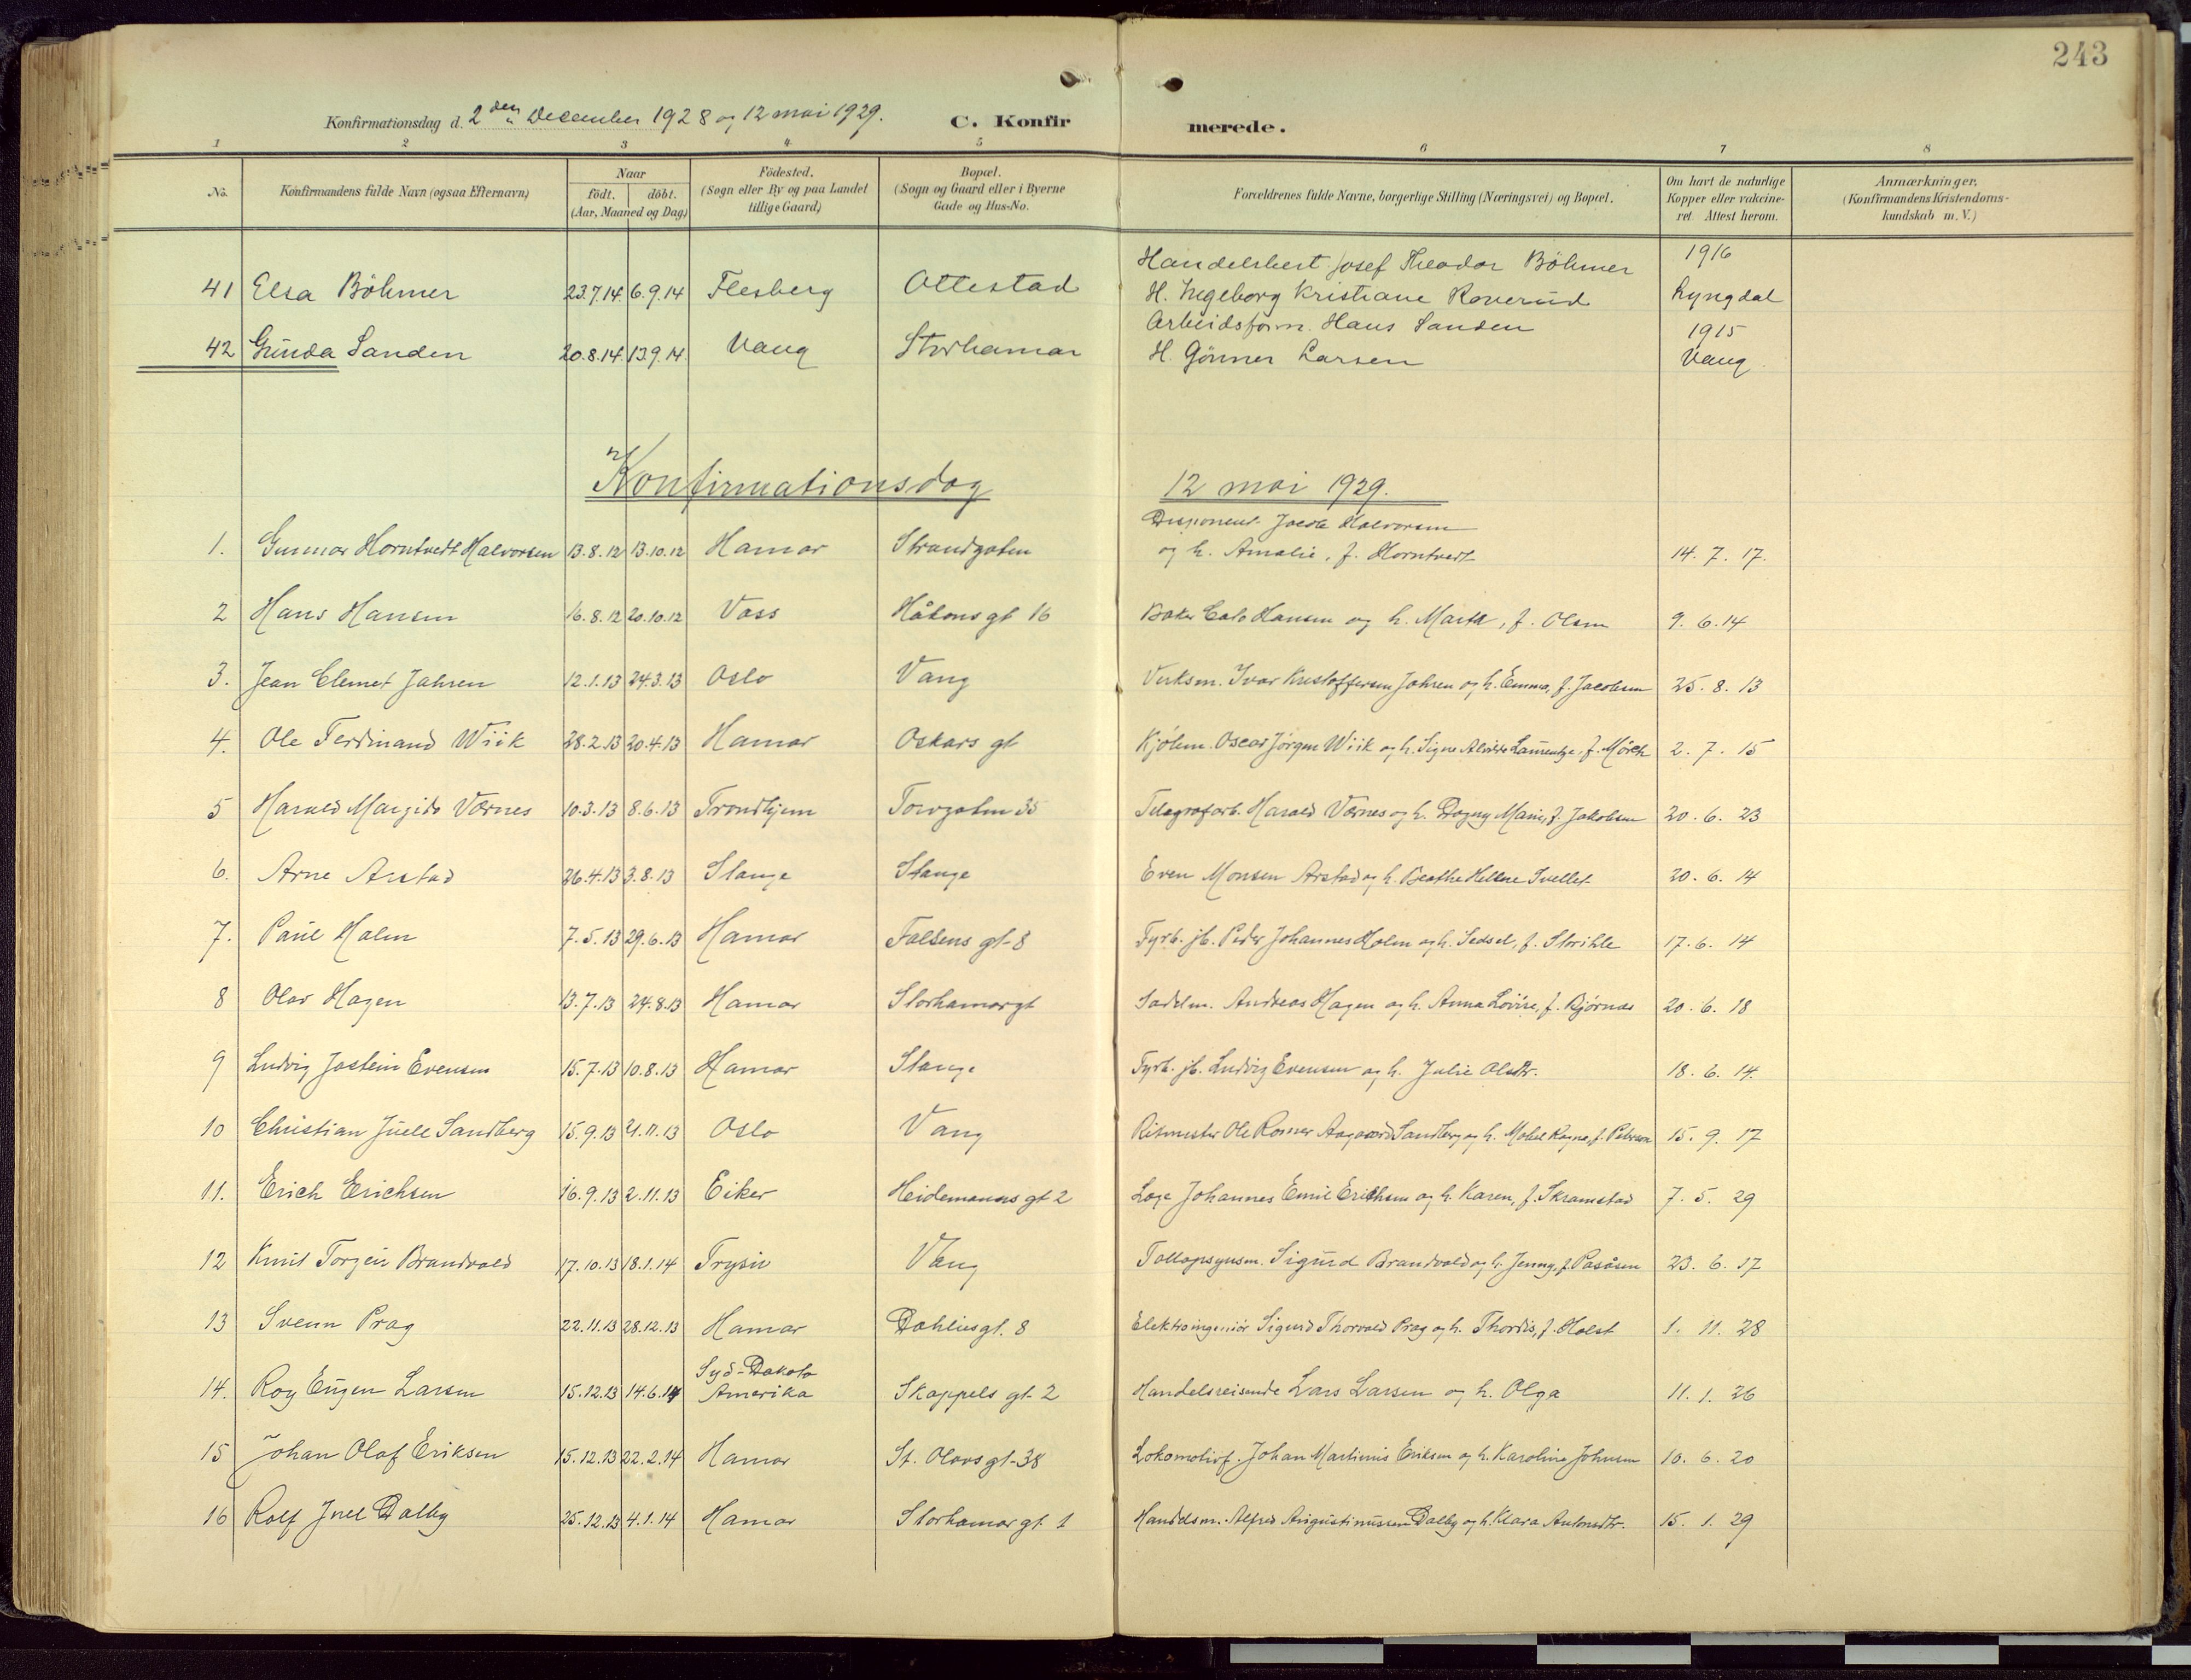 243
Konfirmationsdag d. 2den December 1928 og 12 mai 1929.
C. Konfirmerede.
1 2 3 4 5 6 7 8
No. Konfirmandens fulde Navn (ogsaa Efternavn) Naar født. døbt. (Aar, Maaned og Dag) Födested. (Sogn eller By og paa Landet tillige Gaard) Bopæl. (Sogn og Gaard eller i Byerne Gade og Hus-No. Forældrenes fulde Navne, borgerlige Stilling (Næringsvei) og Bopæl. Om havt de naturlige Kopper eller vakcineret. Attest herom. Anmærkninger. (Konfirmandens Kristendomskundskab m. V.)
Handelsbest. Josef Theodor Böhmer 1916
41 Elsa Böhmer 23.7.14 6.9.14 Flesberg Ottestad H. Ingeborg Kristiane Roverud Lyngdal
Arbeidsform. Hans Sanden 1915
42 Gunda Sanden 20.8.14 13.9.14 Vang Storhamar H. Gönner Larsen Vang
Konfirmationsdag 12 mai 1929.
Disponent Jacob Halvorsen
1. Gunnar Horntvedt Halvorsen 13.8.12 13.10.12 Hamar Strandgaten og h. Amalie, f. Horntvedt 14. 7. 17.
2 Hans Hansen 16.8.12 20.10.12 Voss Håkons gt 16 Baker Carlo Hansen og h. Marta, f. Olsen 9. 6. 14
3. Jean Clemet Jahren 12.1.13 24.3.13 Oslo Vang Verksm. Ivar Kristoffersen Jahren og h. Emma, f. Jacobsen 25. 8. 13
4. Ole Ferdinand Wiik 28.2.13 20.4.13 Hamar Oskars gt Kjøbm. Oscar Jörgen Wiik og h. Signe Laurentze, f. Mörch 2. 7. 15
5 Harald Margido Værnes 10.3.13 8.6.13 Trondhjem Torvgaten 35 Telegrafarb. Harald Værnes og h. Dagny Marie, f. Jakobsen 20. 6. 23
6. Arne Arstad 26.4.13 3.8.13 Stange Stange Even Monsen Arstad og h. Beathe Helene 20. 6. 14
7. Paul Holm 7.5.13 29.6.13 Hamar Falsens gt 8 Fyrb. jb. Peder Johannes Holm og h. Sedsel, f. Storihle 17. 6. 14
8 Olav Hagen 13.7.13 24.8.13 Hamar Storhamargt Sadelm. Andreas Hagen og h. Anna Lovise, f. Bjørnås 20. 6. 18
9 Ludvig Jostein Evensen 15.7.13 10.8.13 Hamar Stange Fyrb. jb. Ludvig Evensen og h. Julie Olsdtr. 18. 6. 14.
10 Christian Juell Sandberg 15.9.13 21.11.13 Oslo Vang Ritmester Ole Romer Aagaard Sandberg og h. Mabel Ragna, f. Peterson 15. 9. 17
11. Erich Erichsen 16.9.13 2.11.13 Eiker Heidemanns gt 2 Læge Johannes Emil Erichsen og h. Karen, f. Skramstad 7. 5. 29
12 Knut Torgeir Brandvold 17.10.13 18.1.14 Trysil Vang Tollopsynsm. Sigurd Brandvold og h. Jenny, f. Påsåsen 23. 6. 17
13 Svenn Prag 22.11.13 28.12.13 Hamar Dahlins gt. 8 Elektroingeniör Sigurd Thorvald Prag og h. Thordis, f. Holst 1. 11. 28
Syd-Dakota
14. Roy Eugen Larsen 15.12.13 14.6.14 Amerika Skappels gt. 2 Handelsreisende Lars Larsen og h. Olga 11. 1. 26
15 Johan Olaf Eriksen 15.12.13 22.2.14 Hamar St. Olavs gt-38 Lokomotivf. Johan Martinius Eriksen og h. Karoline Johnsen 10. 6. 20
16 Rolf Juel Dalby 25.12.13 4.1.14 Hamar Storhamar gt. 1 Handelsm. Alfred Augustinussen Dalby og h. Klara Antonsdtr. 15. 1. 29